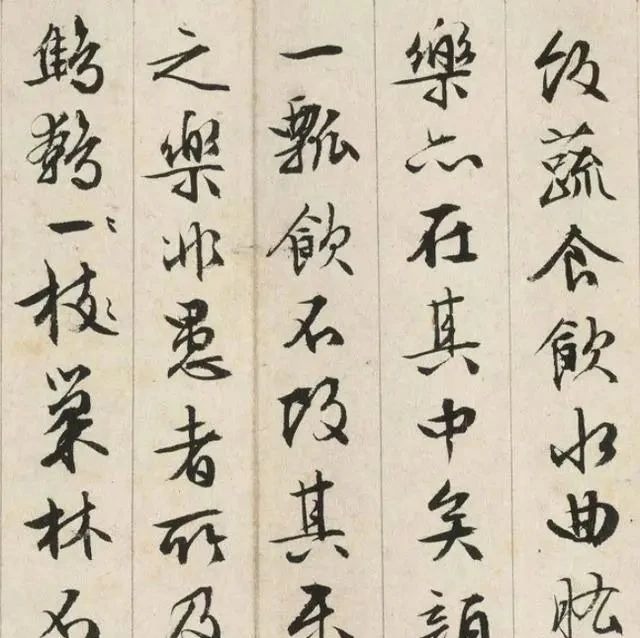 飯蔬食飲水曲肱
樂亦在其中矣顏
一瓢飲不改其樂
之樂非愚者所及
鷦鷯一枝巢林不